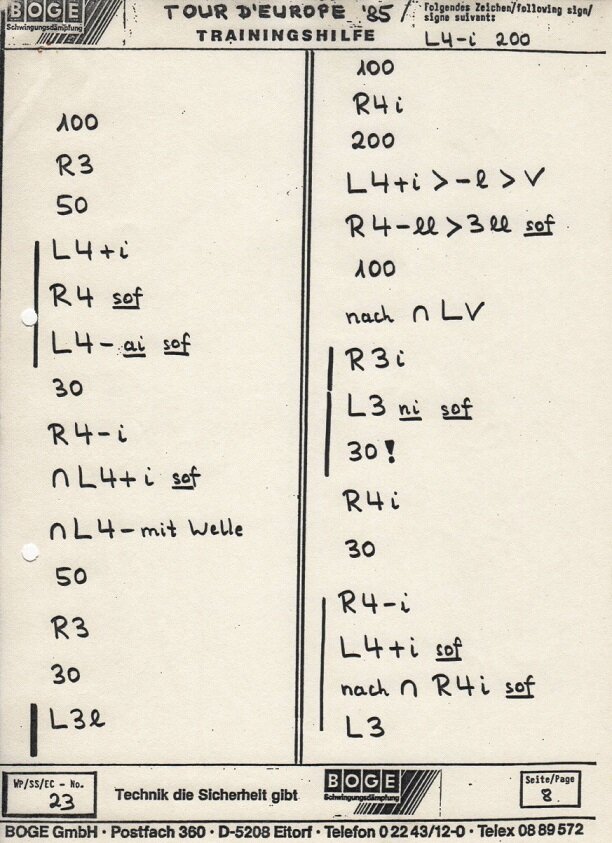 BOGE
Schwingungsdämpfung
TOUR D'EUROPE '85
TRAININGSHILFE
Folgendes Zeichen/following sign/
signe suivant:
L4-i 200
100
R3
50
L4+i
R4 sof
L4- ai sof
30
R4-i
∩L4+i sof
∩L4-mit Welle
50
R3
30
L3l
100
R4i
200
L4+i>-l>V
R4-ll>3ll sof
100
nach ∩ LV
R3i
L3 ni sof
30!
R4i
30
R4-i
L4+i sof
nach ∩ R4i sof
L3
WP/SS/EC - No.
23
Technik die Sicherheit gibt
BOGE
Schwingungsdämpfung
Seite/Page
8
BOGE GmbH · Postfach 360 · D-5208 Eitorf · Telefon 0 22 43/12-0 · Telex 08 89 572